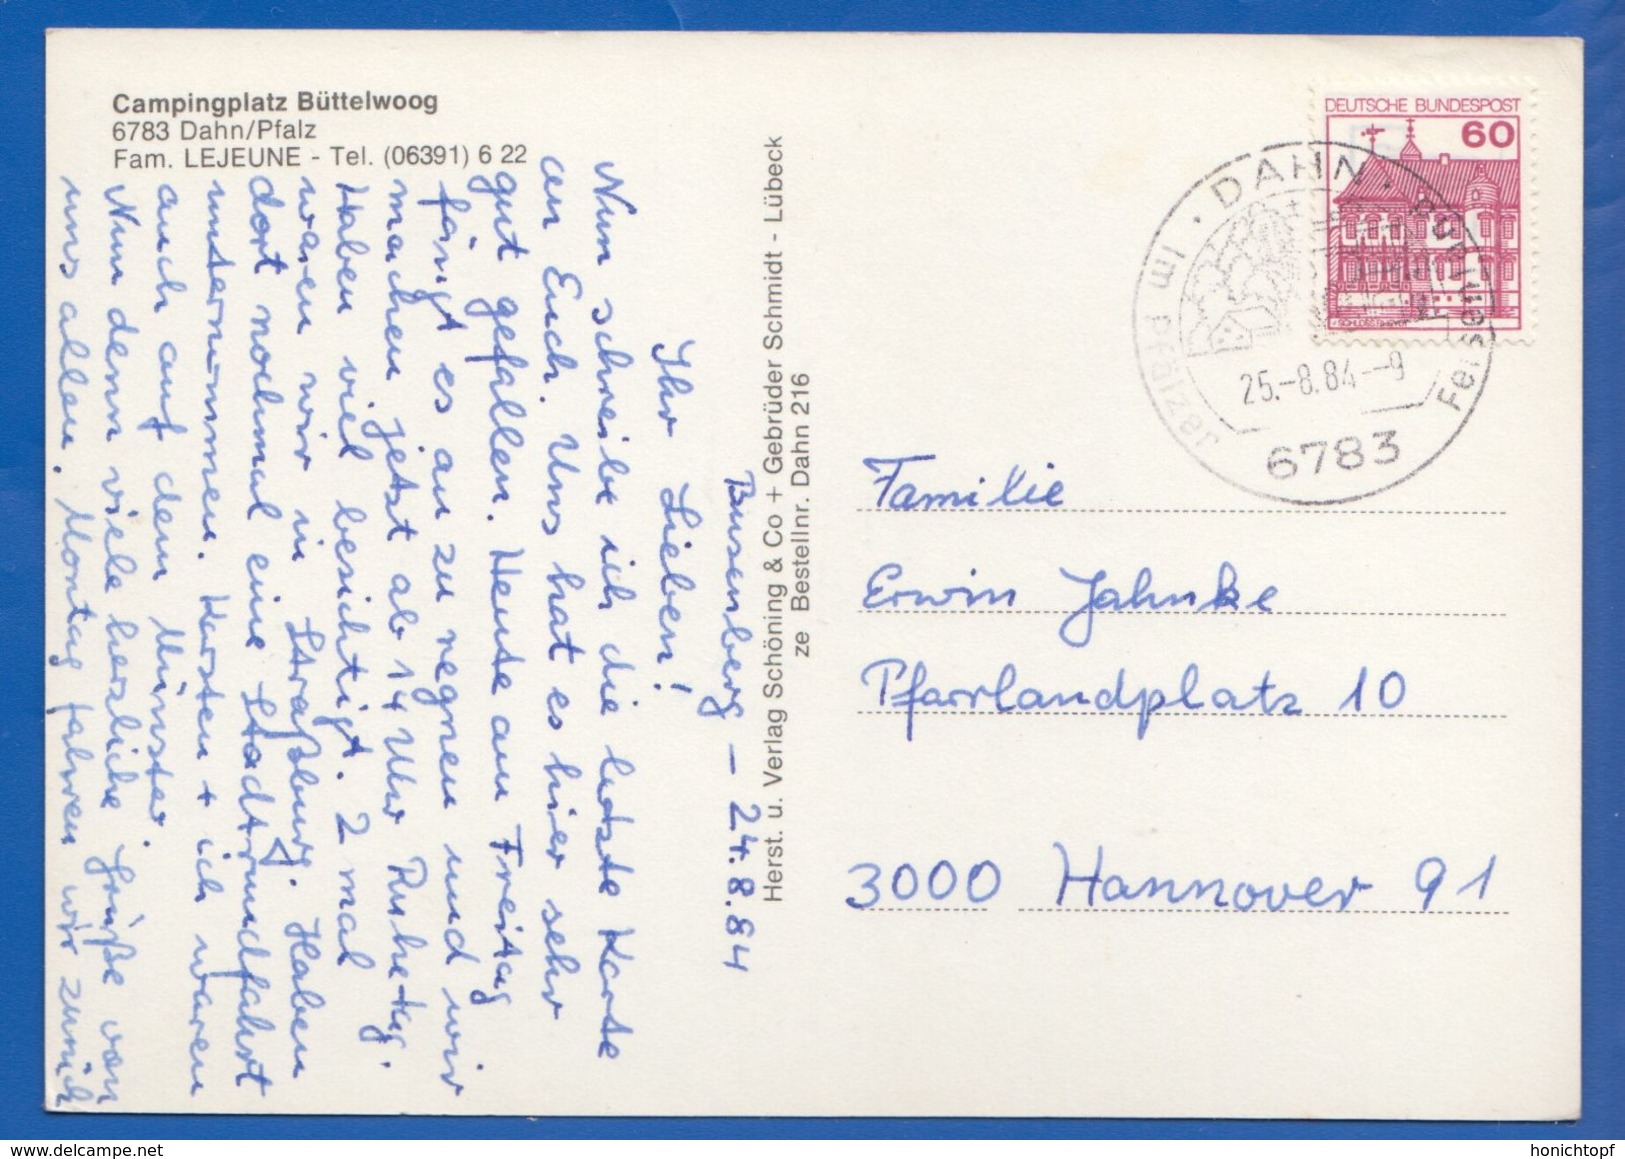 Campingplatz Büttelwoog
6783 Dahn/Pfalz
Fam. LEJEUNE - Tel. (06391) 6 22
Busenberg - 24.8.84
Ihr Lieben!
Nun schreibe ich die letzte Karte
an Euch. Uns hat es hier sehr
gut gefallen. Heute am Freitag
fängt es an zu regnen und wir
machen jetzt ab 14 Uhr Ruhetag.
Haben viel besichtigt. 2 mal
waren wir in Straßburg. Haben
dort nochmal eine Stadtrundfahrt
unternommen. Karsten + ich waren
auch auf dem Münster.
Nun denn viele herzliche Grüße von
uns allen. Montag fahren wir zurück
Herst. u. Verlag Schöning & Co + Gebrüder Schmidt - Lübeck
ze Bestellnr. Dahn 216
DEUTSCHE BUNDESPOST
60
· DAHN ·
Im Pfälzer
25.-8.84--9
6783
Familie
Erwin Jahnke
Pfarrlandplatz 10
3000 Hannover 91
delcampe.net
honichtopf